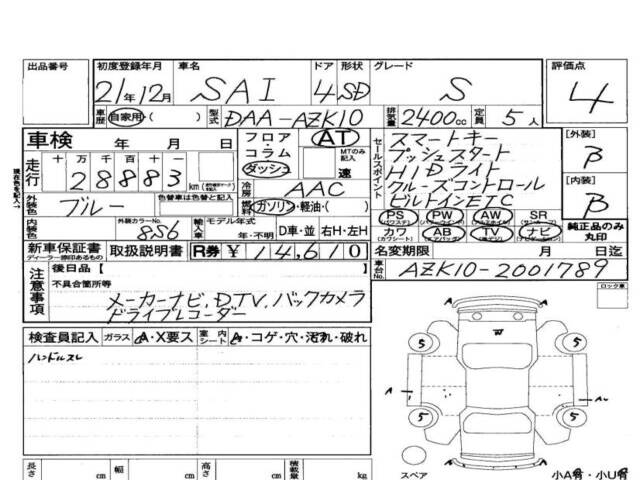 出品番号 初度登録年月 車名 ドア 形状 グレード 評価点
21年12月 SAI 4 SD S 4
車歴 自家用・( ) 型式 DAA-AZK10 排気量 2400cc 定員 5人
車検 年 月 日 フロア・コラム・ダッシュ AT MTのみ記入 速
走行 十万 万 千 百 十 一 km
28883
冷房 AAC
外装色 ブルー 色替車は色替と記入 燃料 ガソリン・軽油・( )
内装色 外装カラーNo. 8S6 輸入車 モデル年式 年・不明 D車・並 右H・左H
セールスポイント スマートキー
プッシュスタート
HIDライト
クルーズコントロール
ビルトインETC
[外装] B
[内装] B
PS PW AW SR
カワ AB TV ナビ 純正品のみ丸印
新車保証書 取扱説明書 R券 ¥14,610 名変期限 月 日迄
ディーラー捺印あるもの
車台No. AZK10-2001789
注意事項 後日品【 】
不具合箇所等
メーカーナビ、DTV、バックカメラ
ドライブレコーダー
ロック車
検査員記入 ガラス A・X要ス 室内シート A・コゲ・穴・汚れ・破れ
ハンドルスレ
A A
W
5 5
A
5 5
スペア
長さ cm 幅 cm 高さ cm 積載量 kg
小A有・小U有